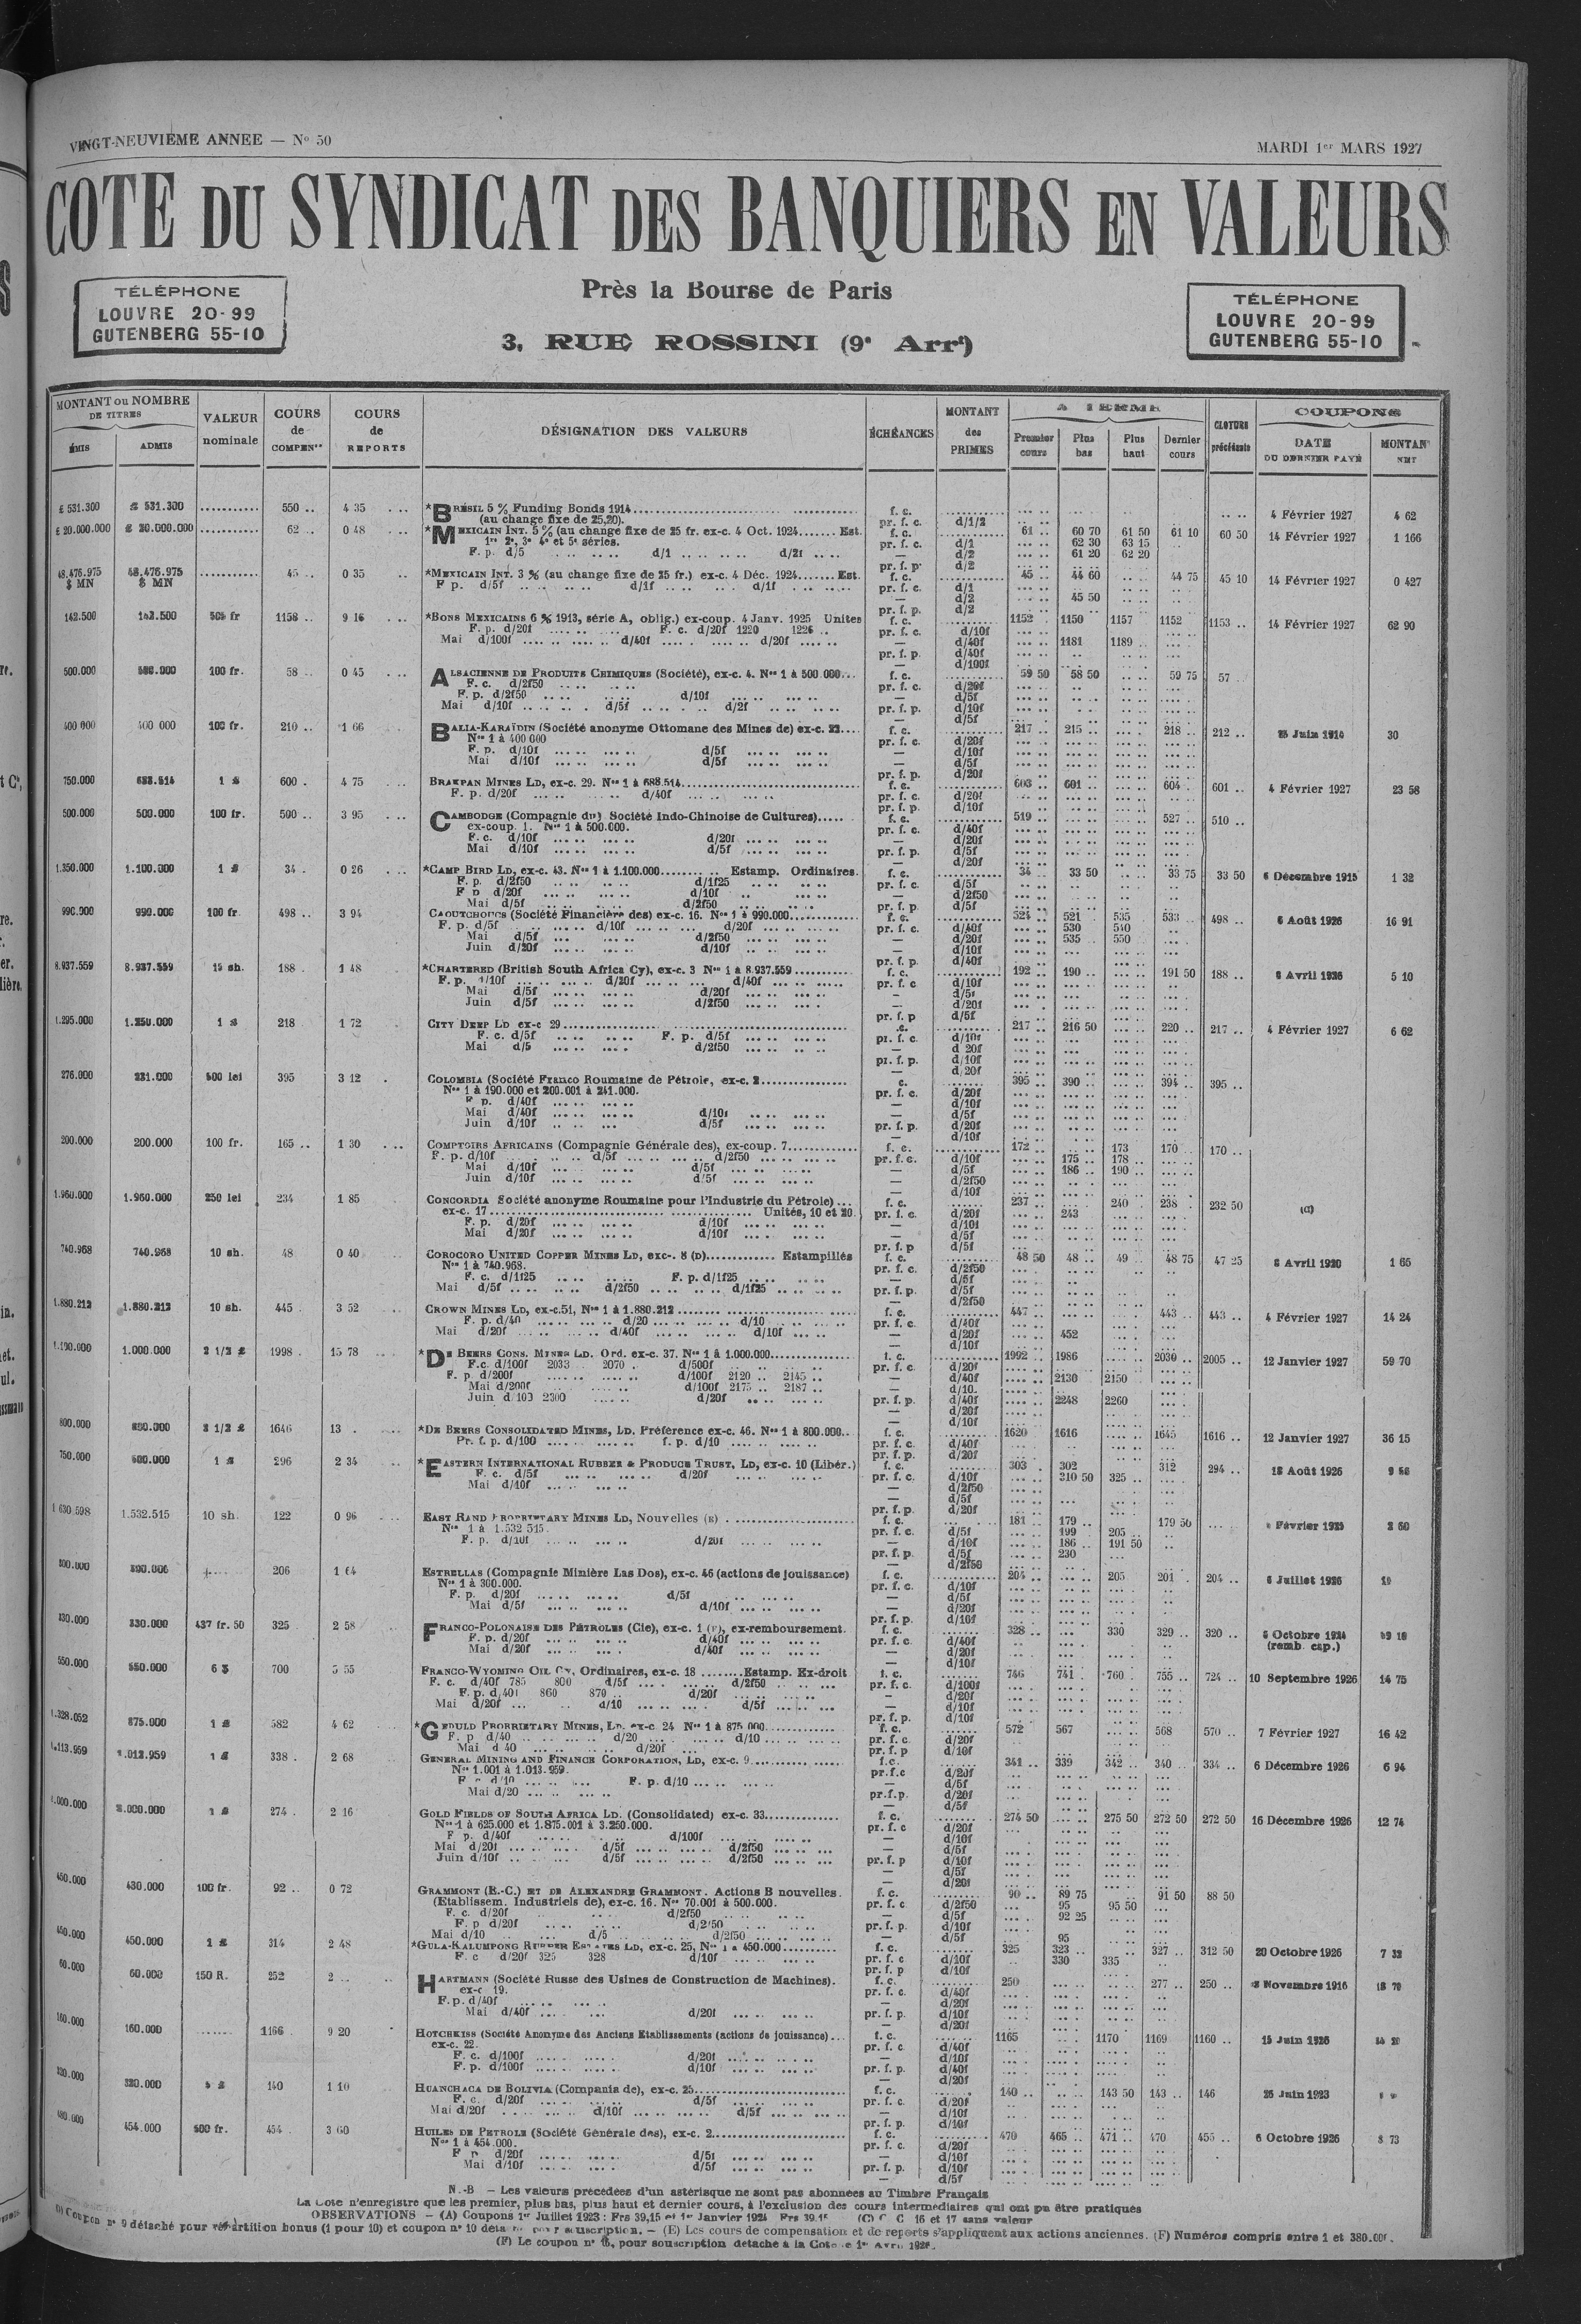 VINGT-NEUVIÈME ANNEE — Nº 50
MARDI 1er MARS 1927
COTE DU SYNDICAT DES BANQUIERS EN VALEURS
TÉLÉPHONE
LOUVRE 20-99
GUTENBERG 55-10
Près la Bourse de Paris
3, RUE ROSSINI (9e Arrt)
TÉLÉPHONE
LOUVRE 20-99
GUTENBERG 55-10
MONTANT ou NOMBRE DE TITRES
ÉMIS
ADMIS
VALEUR nominale
COURS de COMPENon
COURS de REPORTS
DÉSIGNATION DES VALEURS
ÉCHÉANCES
MONTANT des PRIMES
A TERME
Premier cours
Plus bas
Plus haut
Dernier cours
CLOTURE précédente
COUPONS
DATE DU DERNIER PAYÉ
MONTANT NET
£ 531.300 £ 531.300 ........... 550 .. 4 35 *BRÉSIL 5 % Funding Bonds 1914 f. c. 4 Février 1927 4 62
(au change fixe de 25,20). pr. f. c. d/1/2
£ 20.000.000 £ 20.000.000 ........... 62 .. 0 48 *MEXICAIN INT. 5 % (au change fixe de 25 fr. ex-c. 4 Oct. 1924....... Est. f. c. 61 .. 60 70 61 50 61 10 60 50 14 Février 1927 1 166
1re 2e, 3e 4e et 5e séries. pr. f. c. d/1 62 30 63 15
F. p. d/5 d/1 d/2f — d/2 61 20 62 20
pr. f. p. d/2
48.476.975 $ MN 48.476.975 $ MN ........... 45 .. 0 35 *MEXICAIN INT. 3 % (au change fixe de 25 fr.) ex-c. 4 Déc. 1924....... Est. f. c. 45 .. 44 60 44 75 45 10 14 Février 1927 0 427
F p. d/5f d/1f d/1f pr. f. c. d/1
— d/2 45 50
pr. f. p. d/2
142.500 142.500 505 fr 1158 .. 9 16 *BONS MEXICAINS 6 % 1913, série A, oblig.) ex-coup. 4 Janv. 1925 Unites f. c. 1152 1150 1157 1152 1153 .. 14 Février 1927 62 90
F. p. d/20f F. c. d/20f 1220 1226 .. pr. f. c. d/10f
Mai d/100f d/40f d/20f — d/40f 1181 1189
pr. f. p. d/40f
— d/100f
500.000 100 fr. 58 .. 0 45 ALSACIENNE DE PRODUITS CHIMIQUES (Société), ex-c. 4. Nos 1 à 500 000... f. c. 59 50 58 50 59 75 57
F. c. d/2f50 pr. f. c. d/20f
F. p. d/2f50 d/10f — d/5f
Mai d/10f d/5f d/2f pr. f. p. d/10f
— d/5f
400 000 400 000 100 fr. 210 .. 1 66 BALIA-KARAÏDIN (Société anonyme Ottomane des Mines de) ex-c. 22.... f. c. 217 215 218 212 .. 30
Nos 1 à 400 000 pr. f. c. d/20f
F. p. d/10f d/5f — d/10f
Mai d/10f d/5f — d/5f
pr. f. p. d/20f
750.000 688.514 1 £ 600 . 4 75 BRAKPAN MINES LD, ex-c. 29. Nos 1 à 688.514 f. c. 603 .. 601 .. 604 601 .. 4 Février 1927 23 58
F. p. d/20f d/40f pr. f. c. d/20f
pr. f. p. d/10f
500.000 500.000 100 fr. 500 .. 3 95 CAMBODGE (Compagnie du) Société Indo-Chinoise de Cultures)..... f. c. 519 .. 527 510 ..
ex-coup. 1. Nos 1 à 500.000. pr. f. c. d/40f
F. c. d/10f d/20f — d/20f
Mai d/10f d/5f pr. f. p. d/5f
— d/20f
1.350.000 1.100.000 1 £ 34 . 0 26 *CAMP BIRD LD, ex-c. 43. Nos 1 à 1.100.000 Estamp. Ordinaires. f. c. 34 33 50 33 75 33 50 6 Décembre 1915 1 32
F. p. d/2f50 d/1f25 pr. f. c. d/5f
F p d/20f d/10f — d/2f50
Mai d/5f d/2f50 pr. f. p. d/5f
990.000 990.000 100 fr. 498 .. 3 94 CAOUTCHOUCS (Société Financière des) ex-c. 16. Nos 1 à 990.000 f. c. 524 521 535 533 498 .. 6 Août 1926 16 91
F. p. d/5f d/10f d/20f pr. f. c. d/40f 530 540
Mai d/5f d/2f50 — d/20f 535 550
Juin d/20f d/10f — d/10f
pr. f. p. d/40f
8.937.559 8.937.559 15 sh. 188 . 1 48 *CHARTERED (British South Africa Cy), ex-c. 3 Nos 1 à 8.937.559 f. c. 192 190 191 50 188 .. 5 10
F. p. d/10f d/20f d/40f pr. f. c d/10f
Mai d/5f d/20f — d/5f
Juin d/5f d/2f50 — d/20f
pr. f. p d/5f
1.295.000 1.250.000 1 £ 218 1 72 CITY DEEP LD ex-c 29 217 216 50 220 217 .. 4 Février 1927 6 62
F. c. d/5f F. p. d/5f pr. f. c. d/10f
Mai d/5 d/2f50 — d 20f
pr. f. p. d/10f
— d/20f
276.000 231.000 500 lei 395 3 12 COLOMBIA (Société Franco Roumaine de Pétrole, ex-c. 2 395 390 394 395 ..
Nos 1 à 190.000 et 200.001 à 241.000. pr. f. c. d/20f
F p. d/40f — d/10f
Mai d/40f d/10f — d/5f
Juin d/10f d/5f pr. f. p. d/20f
— d/10f
200.000 200.000 100 fr. 165 .. 1 30 COMPTOIRS AFRICAINS (Compagnie Générale des), ex-coup. 7 f. c. 172 173 170 170 ..
F. p. d/10f d/5f d/2f50 pr. f. c. d/10f 175 178
Mai d/10f d/5f — d/5f 186 190
Juin d/10f d/5f — d/2f50
— d/10f
1.960.000 1.960.000 250 lei 234 1 85 CONCORDIA Société anonyme Roumaine pour l'Industrie du Pétrole) ... f. c. 237 240 238 232 50
ex-c. 17 Unités, 10 et 20. pr. f. c. d/20f 243
F. p. d/20f d/10f — d/10f
Mai d/20f d/10f — d/5f
pr. f. p d/5f
740.968 740.968 10 sh. 48 0 40 COROCORO UNITED COPPER MINES LD, exc-. 8 (D) Estampillés f. c. 48 50 48 49 48 75 47 25 1 65
Nos 1 à 740.968. pr. f. c. d/2f50
F. c. d/1f25 F. p. d/1f25 — d/5f
Mai d/5f d/2f50 d/1f25 pr. f. p. d/5f
— d/2f50
1.880.212 1.880.212 10 sh. 445 3 52 CROWN MINES LD, ex-c.51, Nos 1 à 1.880.212 f. c. 447 443 443 .. 4 Février 1927 14 24
F. p. d/40 d/20 d/10 pr. f. c. d/40f
Mai d/20f d/40f d/10f — d/20f 452
— d/10f
1.000.000 2 1/2 £ 1998 . 15 78 *DE BEERS CONS. MINES LD. Ord. ex-c. 37. Nos 1 à 1.000.000 f. c. 1992 1986 2030 2005 .. 12 Janvier 1927 59 70
F.c. d/100f 2033 2070 d/500f pr. f. c. d/20f
F. p. d/200f d/100f 2120 2145 — d/40f 2130 2150
Mai d/200f d/100f 2175 2187 — d/10.
Juin d/100 2300 d/20f pr. f. p. d/40f 2248 2260
— d/20f
— d/10f
800.000 2 1/2 £ 1646 13 . *DE BEERS CONSOLIDATED MINES, LD. Préférence ex-c. 46. Nos 1 à 800.000.. f. c. 1620 1616 1645 1616 .. 12 Janvier 1927 36 15
Pr. f. p. d/100 f. p. d/10 pr. f. c. d/40f
pr. f. p. d/20f
750.000 600.000 1 £ 296 2 34 *EASTERN INTERNATIONAL RUBBER & PRODUCE TRUST, LD, ex-c. 10 (Libér.) f. c. 303 302 312 294 ..
F. c. d/5f d/20f pr. f. c. d/10f 310 50 325
Mai d/10f — d/2f50
— d/5f
pr. f. p. d/20f
1 630 598 1.532.515 10 sh. 122 0 96 EAST RAND PROPRIETARY MINES LD, Nouvelles (E) f. c. 181 179 179 50
Nos 1 à 1.532 515. pr. f. c. d/5f 199 205
F. p. d/10f d/20f — d/10f 186 191 50
pr. f. p. d/5f 230
— d/2f50
206 1 64 ESTRELLAS (Compagnie Minière Las Dos), ex-c. 46 (actions de jouissance) f. c. 204 205 201 204 .. 19
Nos 1 à 300.000. pr. f. c. d/10f
F. p. d/20f d/5f — d/5f
Mai d/5f d/10f — d/20f
pr. f. p. d/10f
330.000 330.000 437 fr. 50 325 2 58 FRANCO-POLONAISE DES PÉTROLES (Cie), ex-c. 1 (F), ex-remboursement. f. c. 328 330 329 320 .. (remb. cap.)
F. p. d/20f d/40f pr. f. c. d/40f
Mai d/20f d/40f — d/20f
— d/10f
550.000 550.000 6 $ 700 5 55 FRANCO-WYOMING OIL Cy, Ordinaires, ex-c. 18 Estamp. Ex-droit f. c. 746 741 760 755 724 .. 10 Septembre 1926 14 75
F. c. d/40f 785 800 d/5f d/2f50 pr. f. c. d/100f
F. p. d/40f 860 870 d/20f — d/20f
Mai d/20f d/10 d/5f — d/10f
pr. f. p. d/10f
1.328.052 875.000 1 £ 582 4 62 *GEDULD PRORRIETARY MINES, LD. ex-c. 24 Nos 1 à 875 000 f. c. 572 567 568 570 .. 7 Février 1927 16 42
F. p d/40 d/20 d/10 pr. f. c. d/20f
Mai d 40 d/20f pr. f. p d/10f
1.113.959 1.013.959 1 £ 338 . 2 68 GENERAL MINING AND FINANCE CORPORATION, LD, ex-c. 9 f.c. 341 339 342 340 334 .. 6 Décembre 1926 6 94
Nos 1.001 à 1.013.959. pr.f.c d/20f
F. c d/10 F. p. d/10 — d/5f
Mai d/20 pr.f.p. d/20f
— d/5f
2.000.000 1 £ 274 . 2 16 GOLD FIELDS OF SOUTH AFRICA LD. (Consolidated) ex-c. 33 f. c. 274 50 275 50 272 50 272 50 16 Décembre 1926 12 74
Nos 1 à 625.000 et 1.875.001 à 3.250.000. pr. f. c d/20f
F p. d/40f d/100f — d/10f
Mai d/20f d/5f d/2f50 — d/5f
Juin d/10f d/5f d/2f50 pr. f. p d/10f
— d/5f
— d/20f
450.000 430.000 100 fr. 92 .. 0 72 GRAMMONT (E.-C.) ET DE ALEXANDRE GRAMMONT. Actions B nouvelles. f. c. 90 .. 89 75 91 50 88 50
(Etablissem. Industriels de), ex-c. 16. Nos 70.001 à 500.000. pr. f. c d/2f50 95 95 50
F. c. d/20f d/2f50 — d/5f 92 25
F. p d/20f d/2f50 pr. f. p. d/10f
Mai d/10 d/5 d/2f50 — d/5f 95
450.000 450.000 1 £ 314 2 48 *GULA-KALUMPONG RUBBER ESTATES LD, ex-c. 25, Nos 1 à 450.000 f. c. 325 323 327 312 50 20 Octobre 1926 7 32
F. c d/20f 325 328 d/10f pr. f. c d/10f 330 335
pr. f. p d/10f
60.000 60.000 150 R. 252 2 .. HARTMANN (Société Russe des Usines de Construction de Machines). f. c. 250 277 250 .. Novembre 1916
ex-c 19. pr. f. c. d/40f
F. p. d/40f — d/20f
Mai d/40f d/20f pr. f. p. d/10f
— d/20f
160.000 160.000 ....... 1166 9 20 HOTCHKISS (Société Anonyme des Anciens Etablissements (actions de jouissance)... f. c. 1165 1170 1169 1160 .. 15 Juin 1926
ex-c. 22. pr. f. c d/40f
F. c. d/100f d/20f — d/10f
F. p. d/100f d/10f pr. f. p. d/40f
— d/20f
320.000 140 1 10 HUANCHACA DE BOLIVIA (Compania de), ex-c. 25 f. c. 140 143 50 143 146 26 Juin 1923
F. c. d/20f d/5f pr. f. c. d/20f
Mai d/20f d/10f d/5f — d/10f
pr. f. p. d/10f
454.000 500 fr. 454 . 3 60 HUILES DE PETROLE (Société Générale des), ex-c. 2 f. c. 470 465 471 470 455 .. 6 Octobre 1926 8 73
Nos 1 à 454.000. pr. f. c. d/20f
F p d/20f d/5f — d/10f
Mai d/10f d/5f pr. f. p. d/10f
— d/5f
N.-B — Les valeurs précédées d'un astérisque ne sont pas abonnées au Timbre Français
La Cote n'enregistre que les premier, plus bas, plus haut et dernier cours, à l'exclusion des cours intermédiaires qui ont pu être pratiqués
OBSERVATIONS — (A) Coupons 1er Juillet 1923 : Frs 39,15 et 1er Janvier 1924 Frs 39.15 (C) C. C 16 et 17 sans valeur
Coupon nº 9 détaché pour répartition bonus (1 pour 10) et coupon nº 10 détaché pour souscription. — (E) Les cours de compensation et de reports s'appliquent aux actions anciennes. (F) Numéros compris entre 1 et 380.000.
(F) Le coupon nº 16, pour souscription détaché à la Cote le 1er Avril 1926.